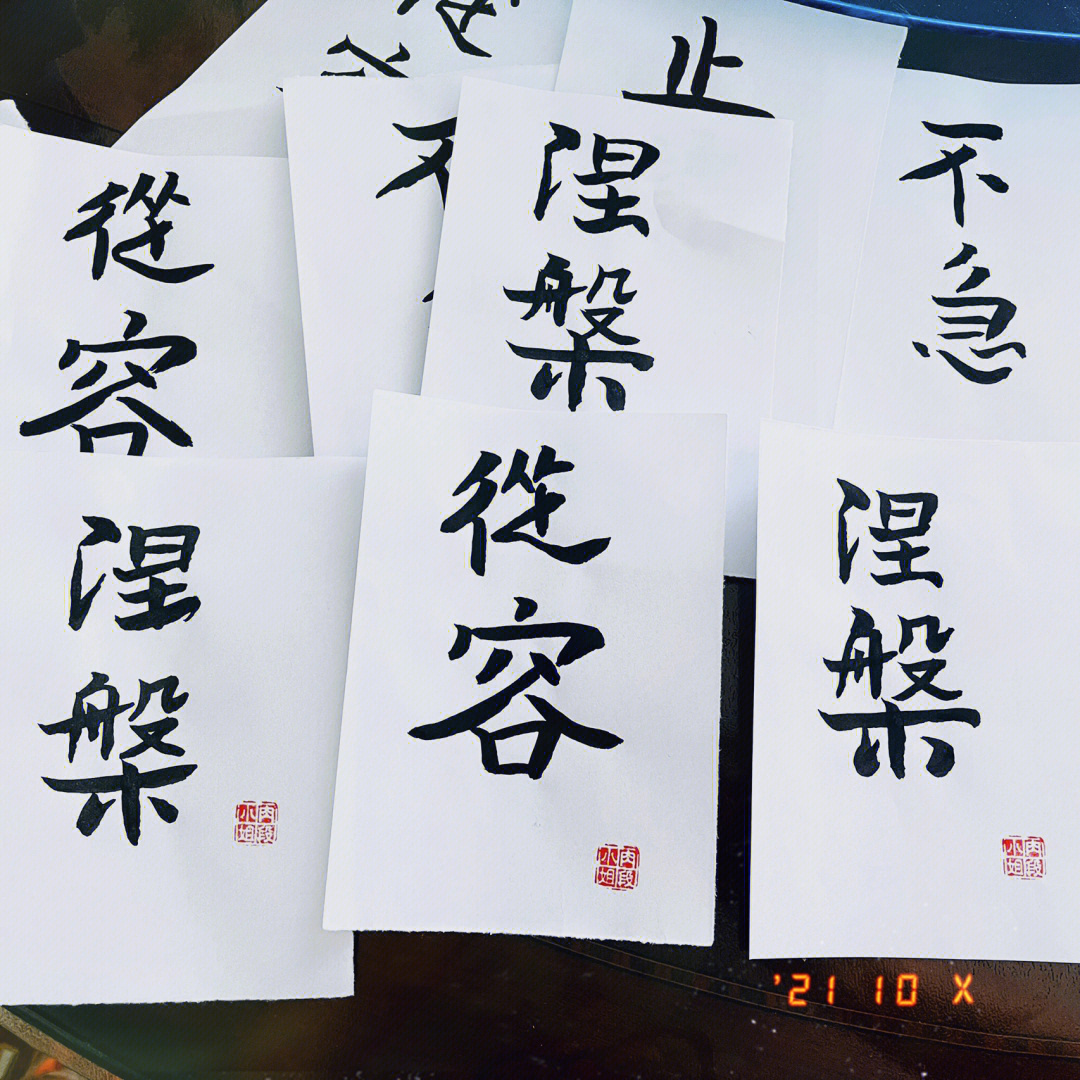 止
不急
從容
不
涅槃
涅槃
肉段
小姐
從容
肉段
小姐
涅槃
肉段
小姐
'21 10 X